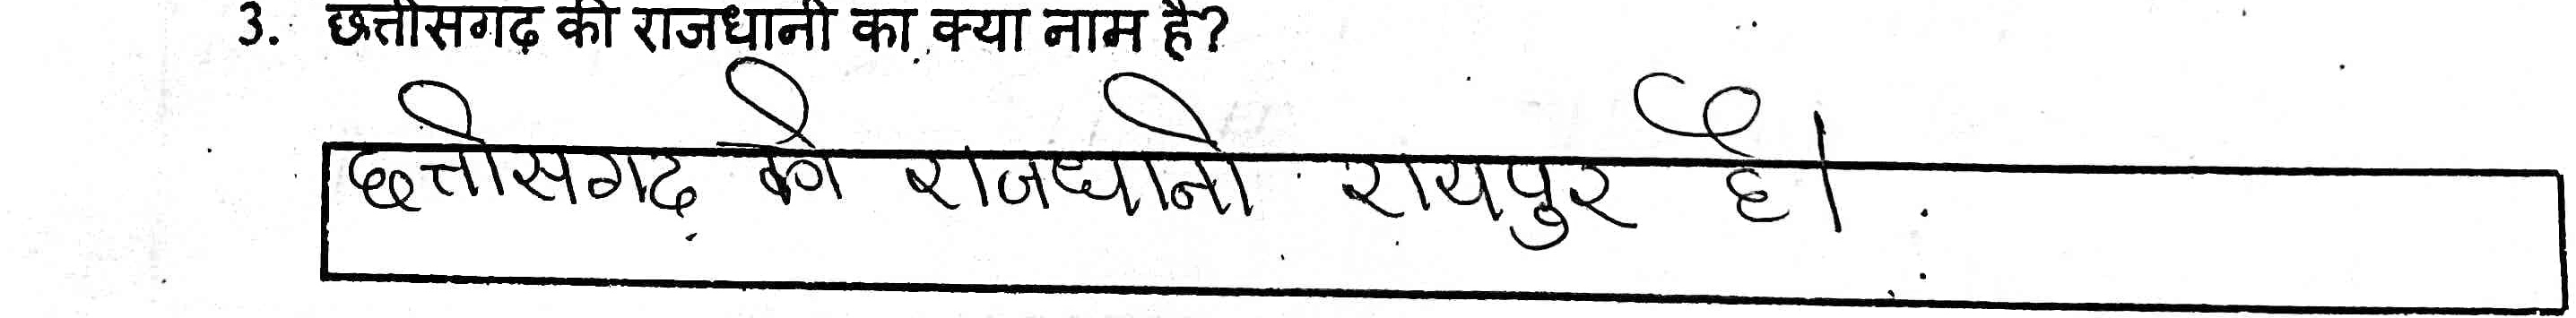 3. छत्तीसगढ़ की राजधानी का क्या नाम है?
छत्तीसगढ़ की राजधानी रायपुर है।